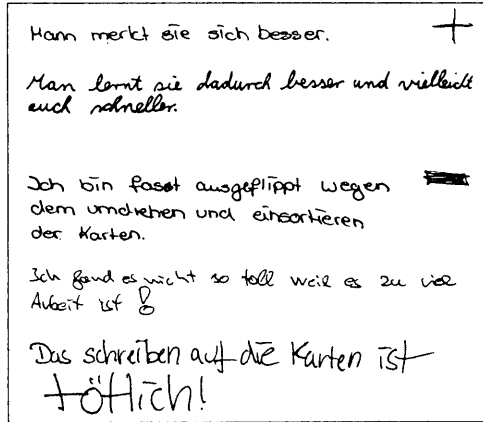 Mann merkt sie sich besser. +
Man lernt sie dadurch besser und vielleicht
auch schneller.
Ich bin fasst ausgeflippt wegen –
dem umdrehen und einsortieren
der Karten.
Ich fand es nicht so toll weil es zu viel
Arbeit ist !
Das schreiben auf die Karten ist
tötlich!